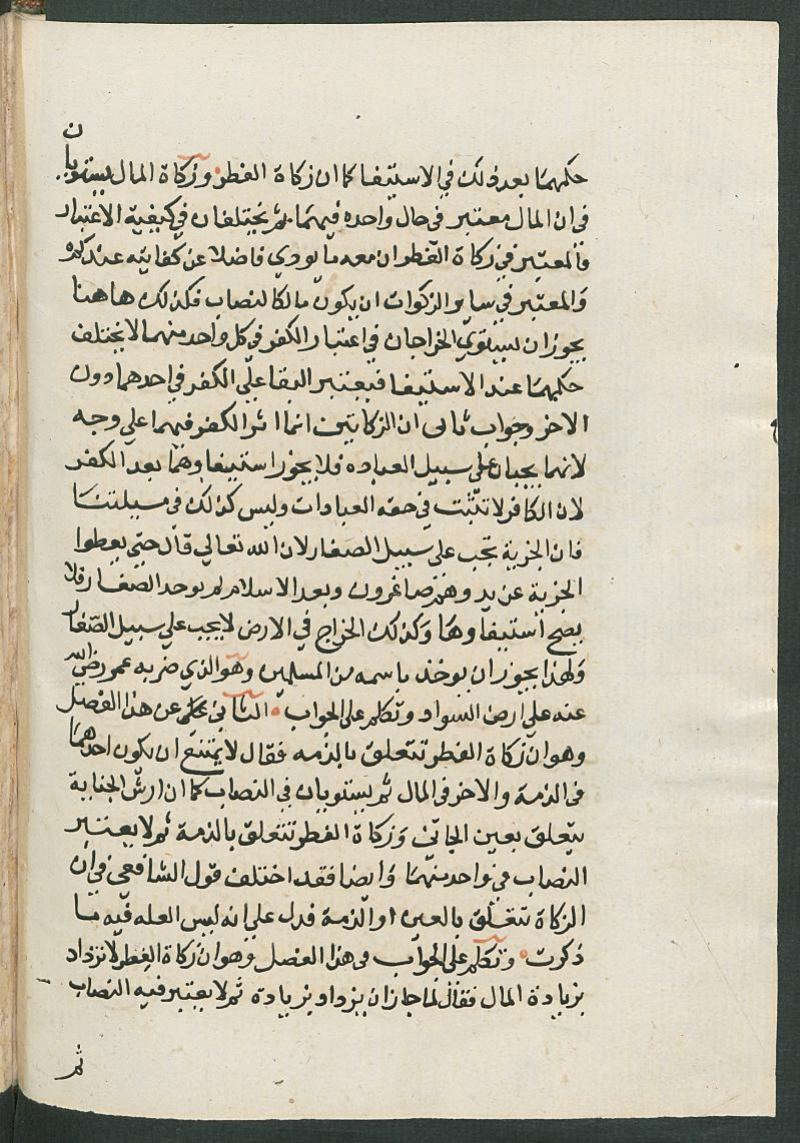 حكمهما بعد ذلك في الاستيفا كما ان زكاة الفطر وزكاة المال يستويان
في ان المال معتبر في حال واحده فيهما ثم يختلفان في كيفية الاعتبار
فالمعتبر في زكاة الفطر ان معه ما يودي فاضلا عن كفايته عندكم
والمعتبر في ساير الزكوات ان يكون مالكا لنصاب فكذلك هاهنا
يجوز ان يستوي الخراجان في اعتبار الكفر في كل واحد منهما لا يختلف
حكمهما عند الاستيفا فيعتبر البقا علي الكفر في احدهما دون
الاخر وجواب ثاني ان الزكاتين انما اثر الكفر فيهما علي وجه
لانهما يجبان علي سبيل العباده فلا يجوز استيفاوهما بعد الكفر
لان الكافر لا تثبت في حقه العبادات وليس كذلك في مسيلتنا
فان الجزية تجب علي سبيل الصغار لان الله تعالي قال حتي يعطوا
الجزية عن يد وهم صاغرون وبعد الاسلام لم يوجد الصغار فلا
يصح استيفاوها وكذلك الخراج في الارض لا يجب علي سبيل الصغار
ولهذا يجوز ان يوخذ باسمه من المسلمين وهو الذي ضربه عمر رضي الله
عنه علي ارض السواد وتكلم علي الجواب الثاني تكلم عن هذا الفصل
وهو ان زكاة الفطر تتعلق بالذمه فقال لا يمتنع ان يكون احدهما
في الذمة والاخر في المال ثم يستويان في النصاب كما ان ارش الجناية
يتعلق بعين الجاني وزكاة الفطر تتعلق بالذمة ثم لا يعتبر
النصاب في واحد منهما وايضا فقد اختلف قول الشافعي في ان
الزكاة تتعلق بالعين او الذمة فدل علي انه ليس العله فيه ما
ذكرت وتكلم علي الجواب في هذا الفصل وهو ان زكاة الفطر لا تزداد
بزيادة المال فقال لما جاز ان يزداد بزيادة ثم لا يعتبر فيه النصاب
ثم